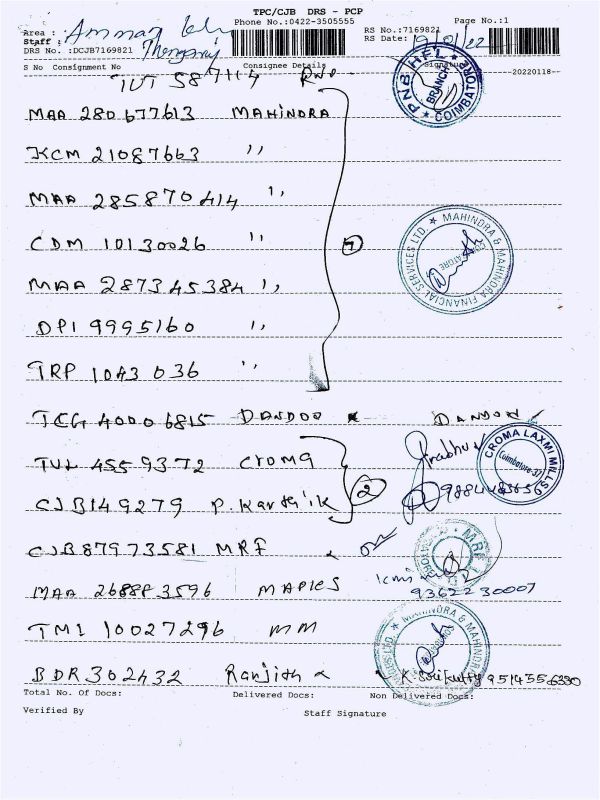 TPC/CJB DRS - PCP
Phone No.:0422-3505555
Page No.:1
Area :
RS No.:7169821
Staff : Thangaraj
RS Date: 19/01/22
DRS No. :DCJB7169821
S No Consignment No Consignee Details Signature
--20220118--
PNB HFL BRANCH COIMBATORE
MAA 280677613 MAHINDRA
KCM 21087663 ''
MAA 285870414 ''
CDM 10130026 '' 7
MAHINDRA & MAHINDRA FINANCIAL SERVICES LTD. COIMBATORE
MAA 287345384 ''
DPI 9995160 ''
TRP 1043036 ''
TCG 40006815 DANDOO DANDOO
TUL 4559372 CROMA Prabhu
CROMA LAXMI MILLS Coimbatore-37
CJB149279 P. Karthik 2
CJB87973581 MRF
MAA 268883596 MAPLES 9362230007
TMI 10027296 MM
MAHINDRA & MAHINDRA
BDR302432 Ranjith K. Srikutty 9514556330
Total No. Of Docs: Delivered Docs: Non Delivered Docs:
Verified By Staff Signature